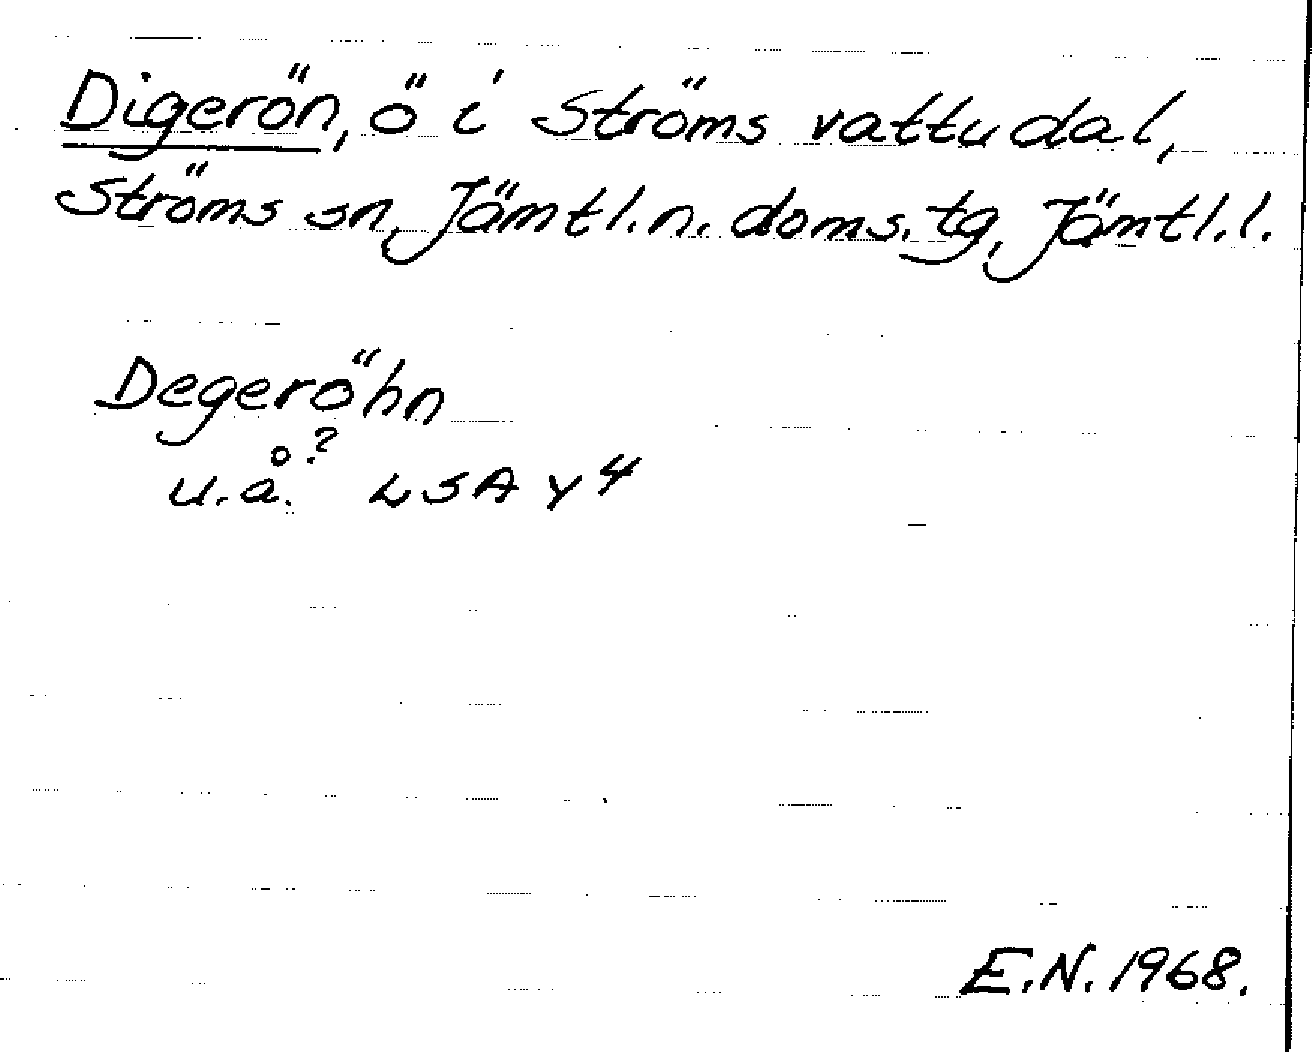 Digerön, ö i Ströms vattudal,
Ströms sn, Jämtl.n. doms.tg, Jämtl.l.
Degeröhn
u.å.? LSA Y4
E.N. 1968.